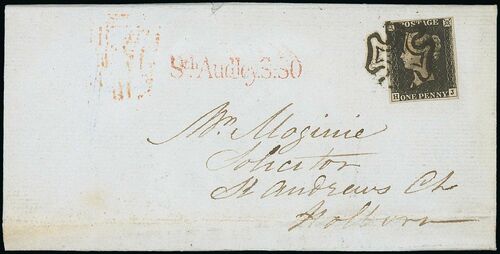 Sth Audley.S:SO
POSTAGE
H ONE PENNY J
Mr. Maginie
Solicitor
St Andrews Ct
Holborn